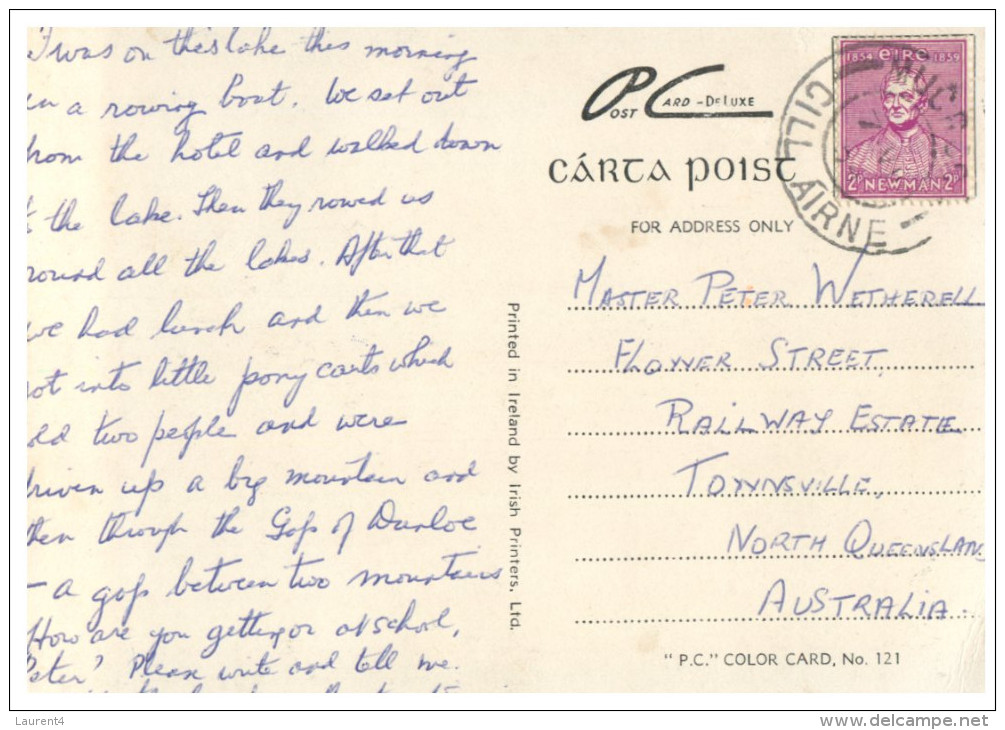 I was on this lake this morning
in a rowing boat. We set out
from the hotel and walked down
the lake. Then they rowed us
round all the lakes. After that
we had lunch and then we
got into little pony carts which
two people and were
driven up a big mountain and
then through the Gap of Dunloe
- a gap between two mountains
How are you getting on at school,
Peter? Please write and tell me.
POST CARD - DE LUXE
CÁRTA POIST
FOR ADDRESS ONLY
1854 éire 1859
2P NEWMAN 2P
CILL AIRNE
MASTER PETER WETHERELL
FLOWER STREET,
RAILWAY ESTATE
TOWNSVILLE,
NORTH QUEENSLAN
AUSTRALIA.
Printed in Ireland by Irish Printers, Ltd.
"P.C." COLOR CARD, No. 121
Laurent4
www.delcampe.net